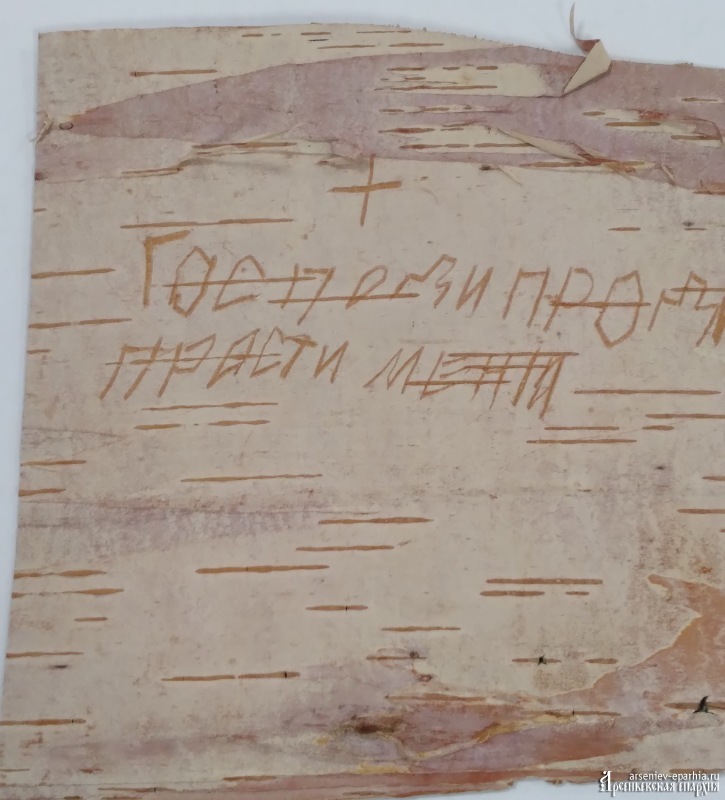 +
ГОСПОДИ
ПРАСТИ МЕНЯ
arseniev-eparhia.ru
Арсеньевская епархия